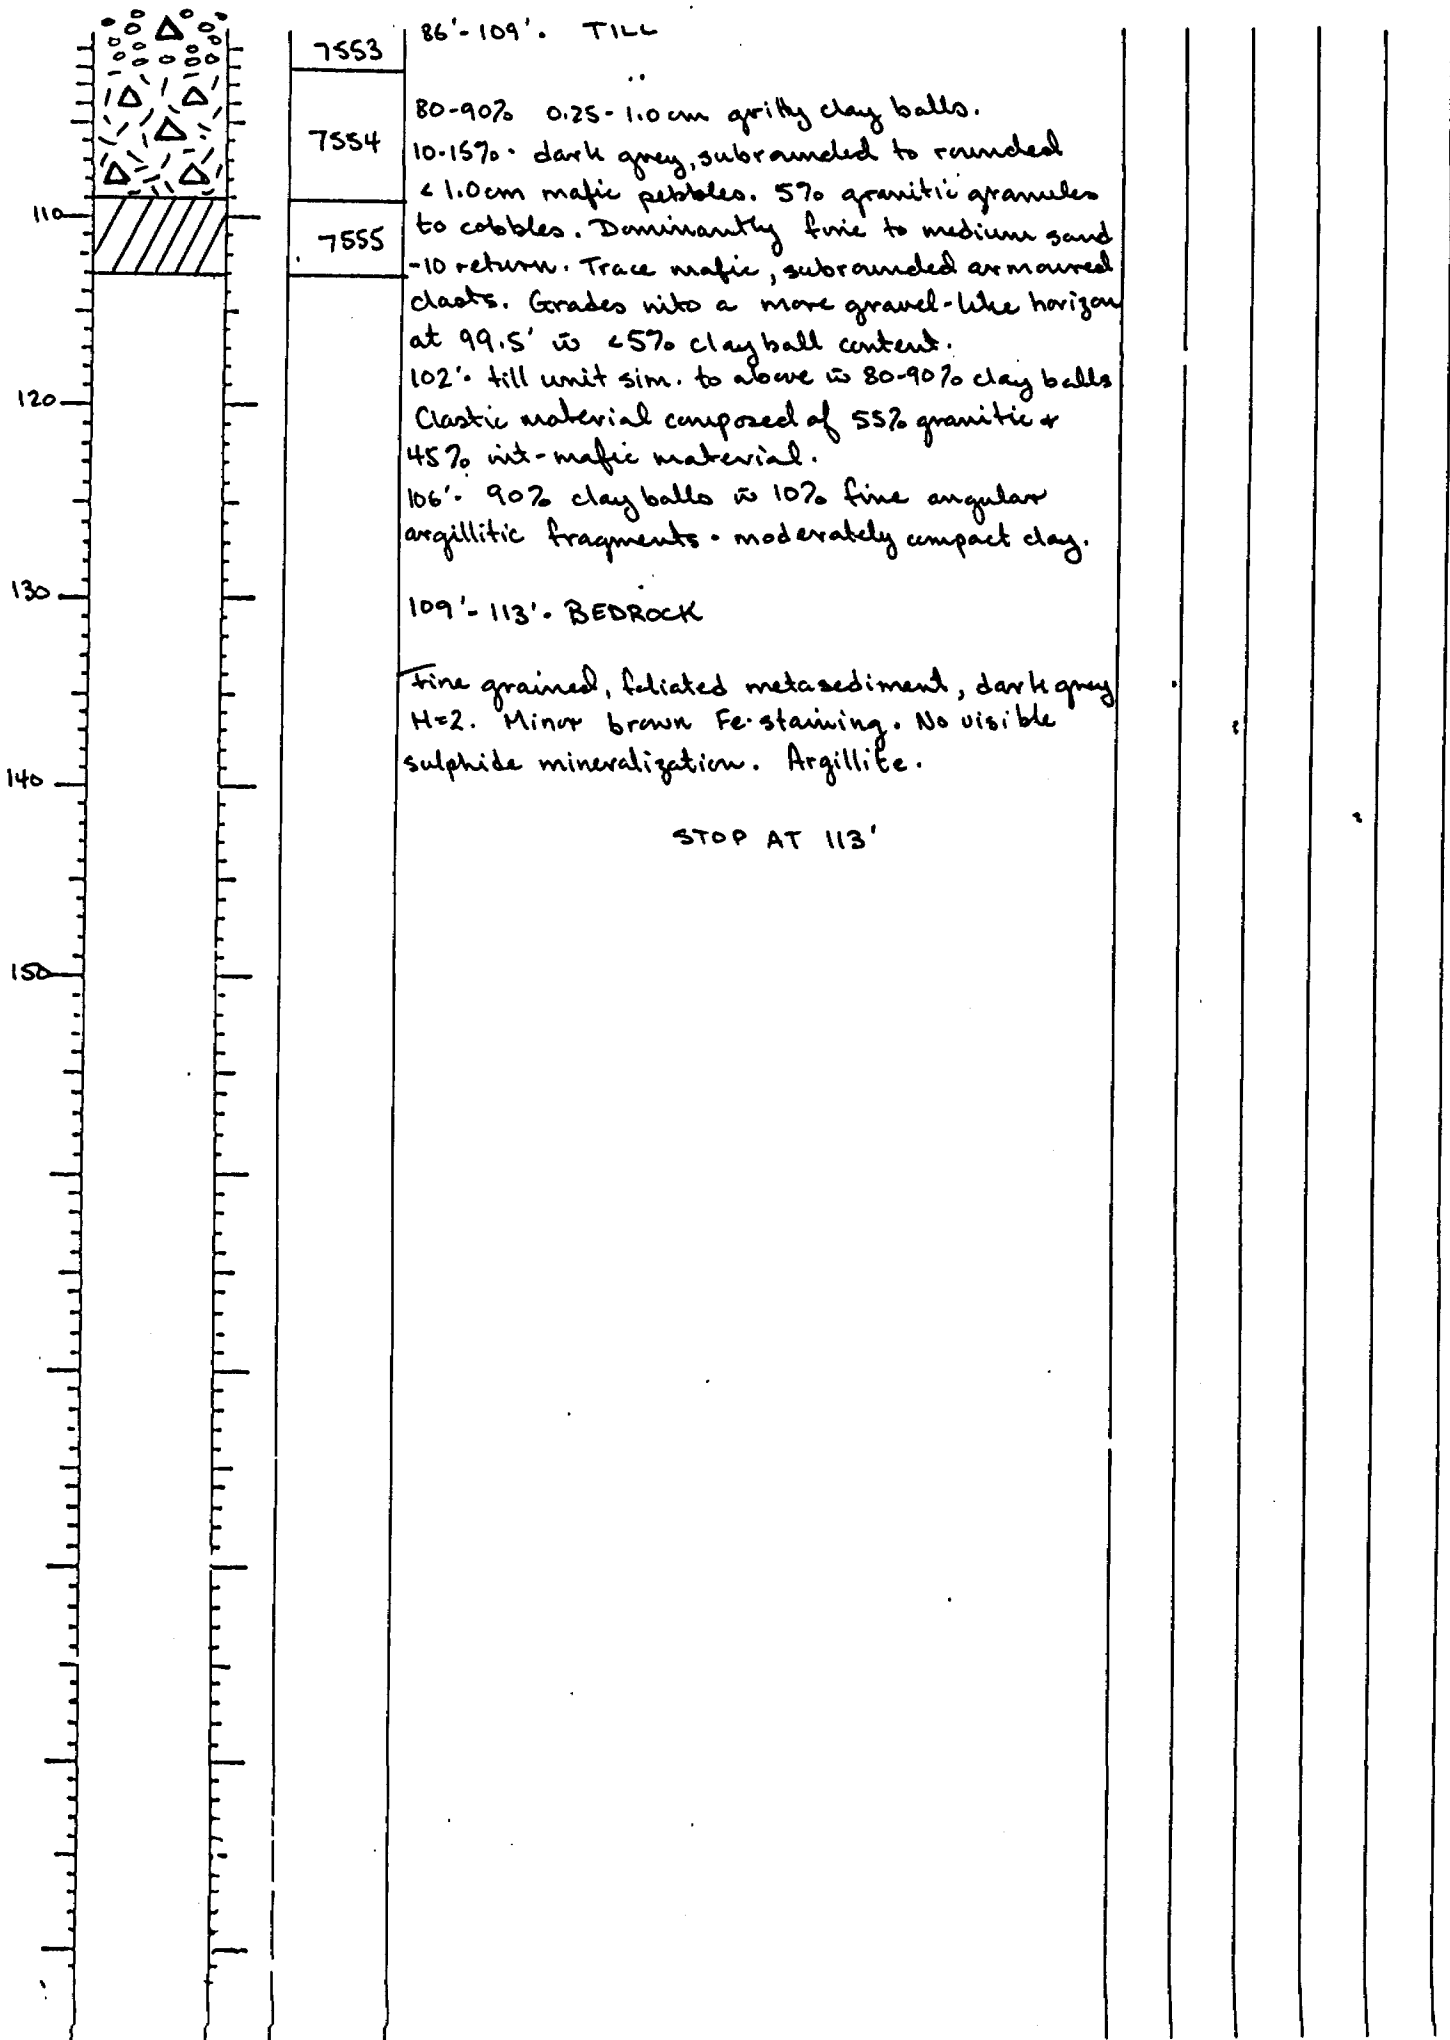 7553
86'-109'. TILL
7554
80-90% 0.25-1.0cm gritty clay balls.
10-15%. dark grey, subrounded to rounded
< 1.0cm mafic pebbles. 5% granitic granules
110
7555
to cobbles. Dominantly fine to medium sand
-10 return. Trace mafic, subrounded armoured
clasts. Grades into a more gravel-like horizon
at 99.5' w̄ <5% clayball content.
102'. till unit sim. to above w̄ 80-90% clay balls
120
Clastic material composed of 55% granitic &
45% int-mafic material.
106'. 90% clay balls w̄ 10% fine angular
argillitic fragments. moderately compact clay.
130
109'-113'. BEDROCK
Fine grained, foliated metasediment, dark grey
H=2. Minor brown Fe-staining. No visible
sulphide mineralization. Argillite.
140
STOP AT 113'
150